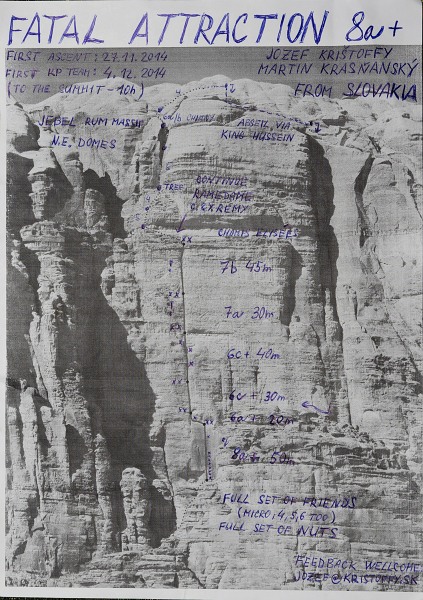 FATAL ATTRACTION 8a+
FIRST ASCENT: 27.11.2014
FIRST RP TEAM: 4.12.2014
(TO THE SUMMIT - 10h)
JOZEF KRIŠTOFFY
MARTIN KRASŇANSKÝ
FROM SLOVAKIA
JEBEL RUM MASSIF
N.E. DOMES
ABSEIL VIA
KING HUSSEIN
TREE
CONTINUE
CHAMPS ELYSEES
7b 45m
7a 30m
6c+ 40m
6c+ 30m
6a+ 20m
8a+ 50m
FULL SET OF FRIENDS
(MICRO, 4, 5, 6 TOO)
FULL SET OF NUTS
FEEDBACK WELLCOME
JOZEF@KRISTOFFY.SK